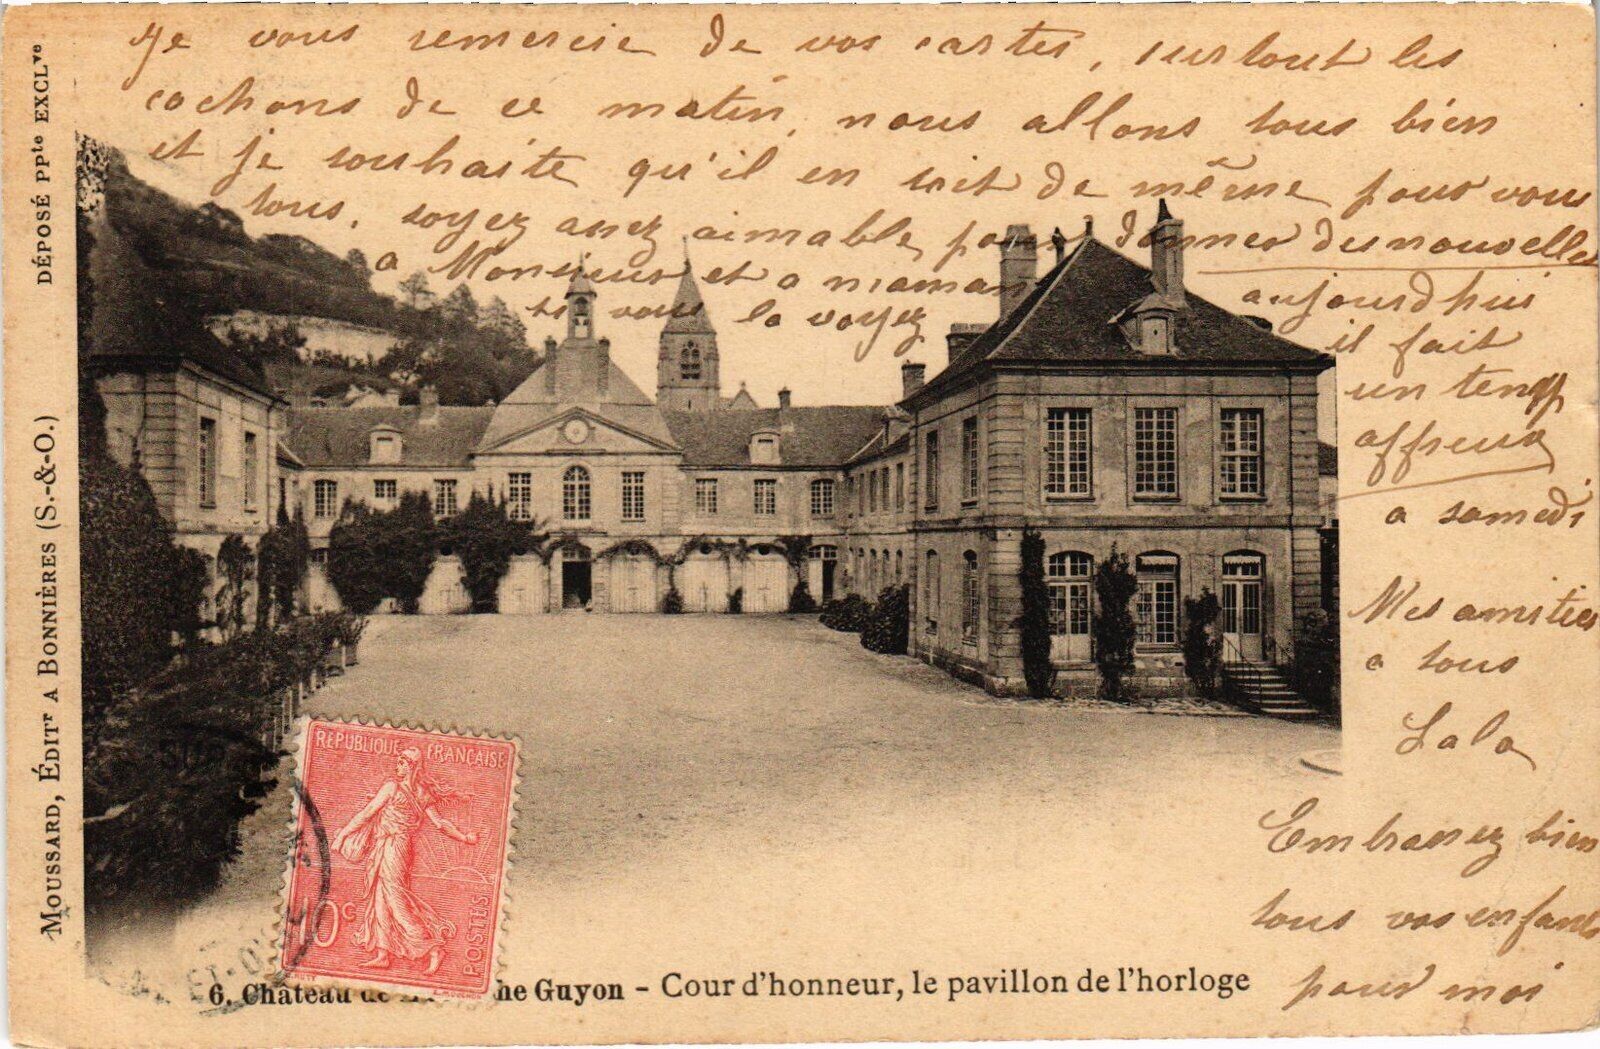 Je vous remercie de vos cartes, surtout les
cochons de ce matin, nous allons tous bien
et je souhaite qu'il en soit de même pour vous
tous, soyez assez aimable pour donner des nouvelles
a Monsieur et a maman
si vous la voyez
aujourd hui
il fait
un temps
affreux
a samedi
Mes amitiés
a tous
Lala
Embrassez bien
tous vos enfants
pour moi
MOUSSARD, ÉDITr A BONNIÈRES (S.-&-O.) DÉPOSÉ PPte EXCLve
REPUBLIQUE FRANÇAISE
10c
POSTES
ET-O
6. Château de he Guyon - Cour d'honneur, le pavillon de l'horloge